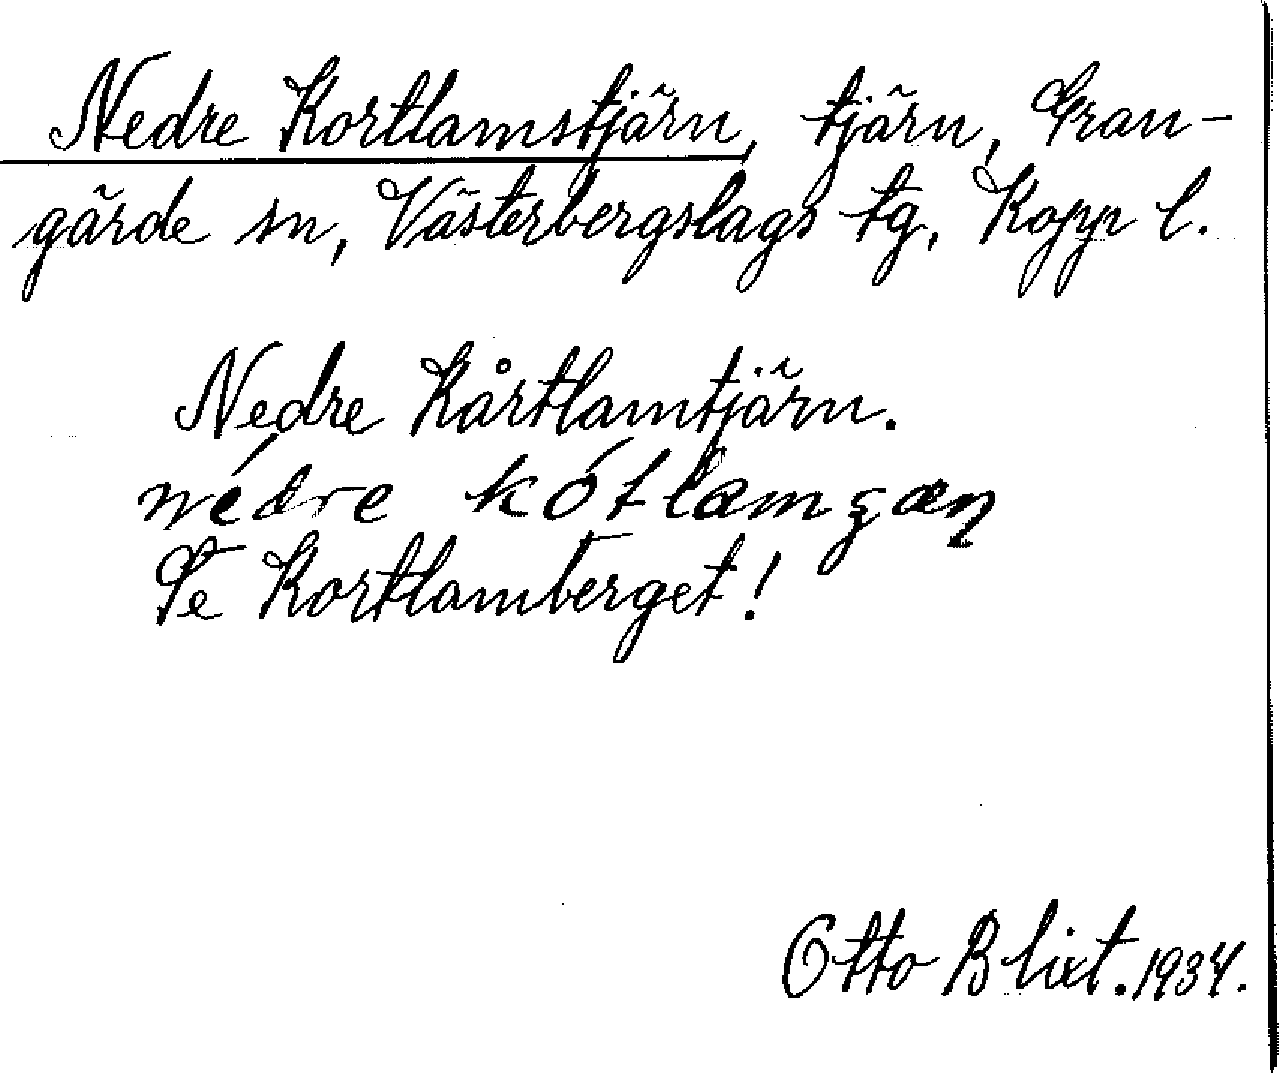 Nedre Kortlamstjärn, tjärn, Gran-
gärde sn, Västerbergslags tg, Kopp l.
Nedre Kårtlamtjärn.
nédre kótlamʂæɳ
Se Kortlamberget!
Otto Blixt. 1934.